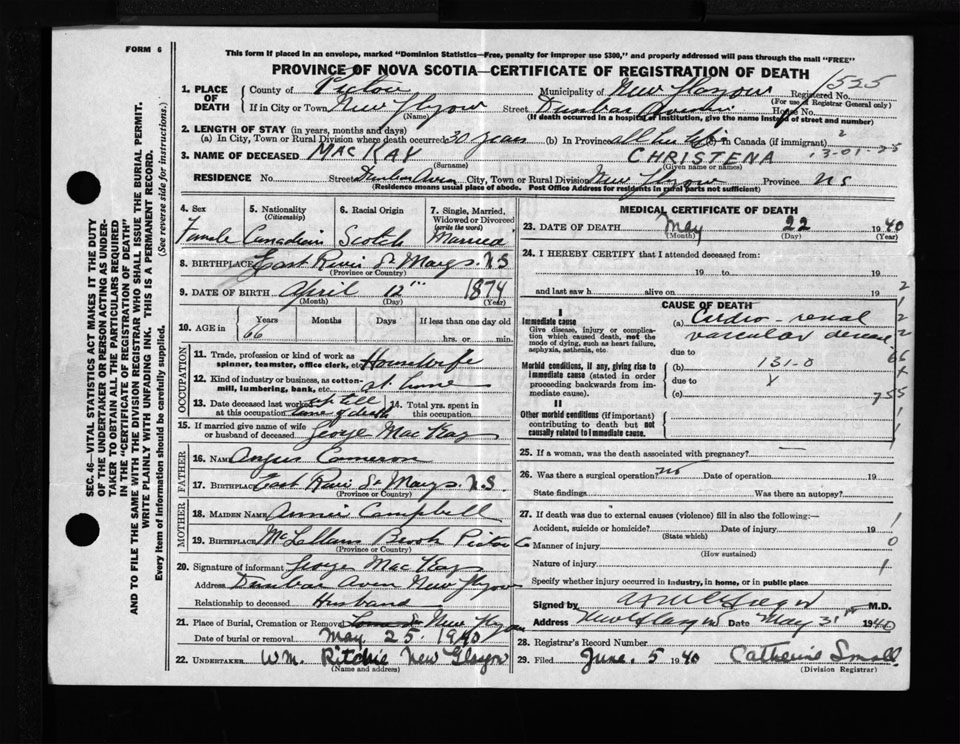 FORM 6
This form if placed in an envelope, marked "Dominion Statistics—Free, penalty for improper use $300," and properly addressed will pass through the mail "FREE"
PROVINCE OF NOVA SCOTIA—CERTIFICATE OF REGISTRATION OF DEATH
1. PLACE OF DEATH
County of Pictou Municipality of New Glasgow Registered No. 1525
(For use of Registrar General only)
If in City or Town New Glasgow Street Dunbar House No.
(Name) (If death occurred in a hospital or institution, give the name instead of street and number)
2. LENGTH OF STAY (in years, months and days)
(a) In City, Town or Rural Division where death occurred 30 years (b) In Province all her life (c) In Canada (if immigrant)
3. NAME OF DECEASED MACKAY CHRISTENA
(Surname) (Given name or names)
RESIDENCE No. Street Dunbar Aven City, Town or Rural Division New Glasgow Province NS
(Residence means usual place of abode. Post Office Address for residents in rural parts not sufficient)
4. Sex Female
5. Nationality (Citizenship) Canadian
6. Racial Origin Scotch
7. Single, Married, Widowed or Divorced (write the word) Married
8. BIRTHPLACE East River St Marys N.S
(Province or Country)
9. DATE OF BIRTH April 12 1874
(Month) (Day) (Year)
10. AGE in Years 66 Months Days If less than one day old
hrs. or min.
OCCUPATION
11. Trade, profession or kind of work as spinner, teamster, office clerk, etc. Housewife
12. Kind of industry or business, as cotton-mill, lumbering, bank, etc. at home
13. Date deceased last worked at this occupation up till time of death
14. Total yrs. spent in this occupation
15. If married give name of wife or husband of deceased George MacKay
FATHER
16. Name Angus Cameron
17. Birthplace East River St Marys N.S.
(Province or Country)
MOTHER
18. MAIDEN NAME Annie Campbell
19. BIRTHPLACE McLellans Brook Pictou Co
(Province or Country)
20. Signature of informant George MacKay
Address Dunbar Aven New Glasgow
Relationship to deceased Husband
21. Place of Burial, Cremation or Removal New Glasgow
Date of burial or removal May 25 1940
22. UNDERTAKER Wm. Ritchie New Glasgow
(Name and address)
MEDICAL CERTIFICATE OF DEATH
23. DATE OF DEATH May 22 1940
(Month) (Day) (Year)
24. I HEREBY CERTIFY that I attended deceased from:
19 to 19
and last saw h alive on 19
CAUSE OF DEATH
I
Immediate cause
Give disease, injury or complication which caused death, not the mode of dying, such as heart failure, asphyxia, asthenia, etc.
(a) Cardio-renal
vascular disease
due to
Morbid conditions, if any, giving rise to immediate cause (stated in order proceeding backwards from immediate cause).
(b) 131-0
due to
(c)
II
Other morbid conditions (if important) contributing to death but not causally related to immediate cause.
25. If a woman, was the death associated with pregnancy?
26. Was there a surgical operation? no Date of operation 19
State findings Was there an autopsy?
27. If death was due to external causes (violence) fill in also the following:—
Accident, suicide or homicide? Date of injury 19
(State which)
Manner of injury
(How sustained)
Nature of injury
Specify whether injury occurred in industry, in home, or in public place
Signed by M.D.
Address New Glasgow Date May 31 1940
28. Registrar's Record Number
29. Filed June. 5 1940 Catherine Small
(Division Registrar)
SEC. 46—VITAL STATISTICS ACT MAKES IT THE DUTY
OF THE UNDERTAKER OR PERSON ACTING AS UNDERTAKER
TO OBTAIN ALL THE PARTICULARS REQUIRED
IN THE "CERTIFICATE OF REGISTRATION OF DEATH"
AND TO FILE THE SAME WITH THE DIVISION REGISTRAR WHO SHALL ISSUE THE BURIAL PERMIT.
WRITE PLAINLY WITH UNFADING INK. THIS IS A PERMANENT RECORD.
Every item of information should be carefully supplied. (See reverse side for instructions.)